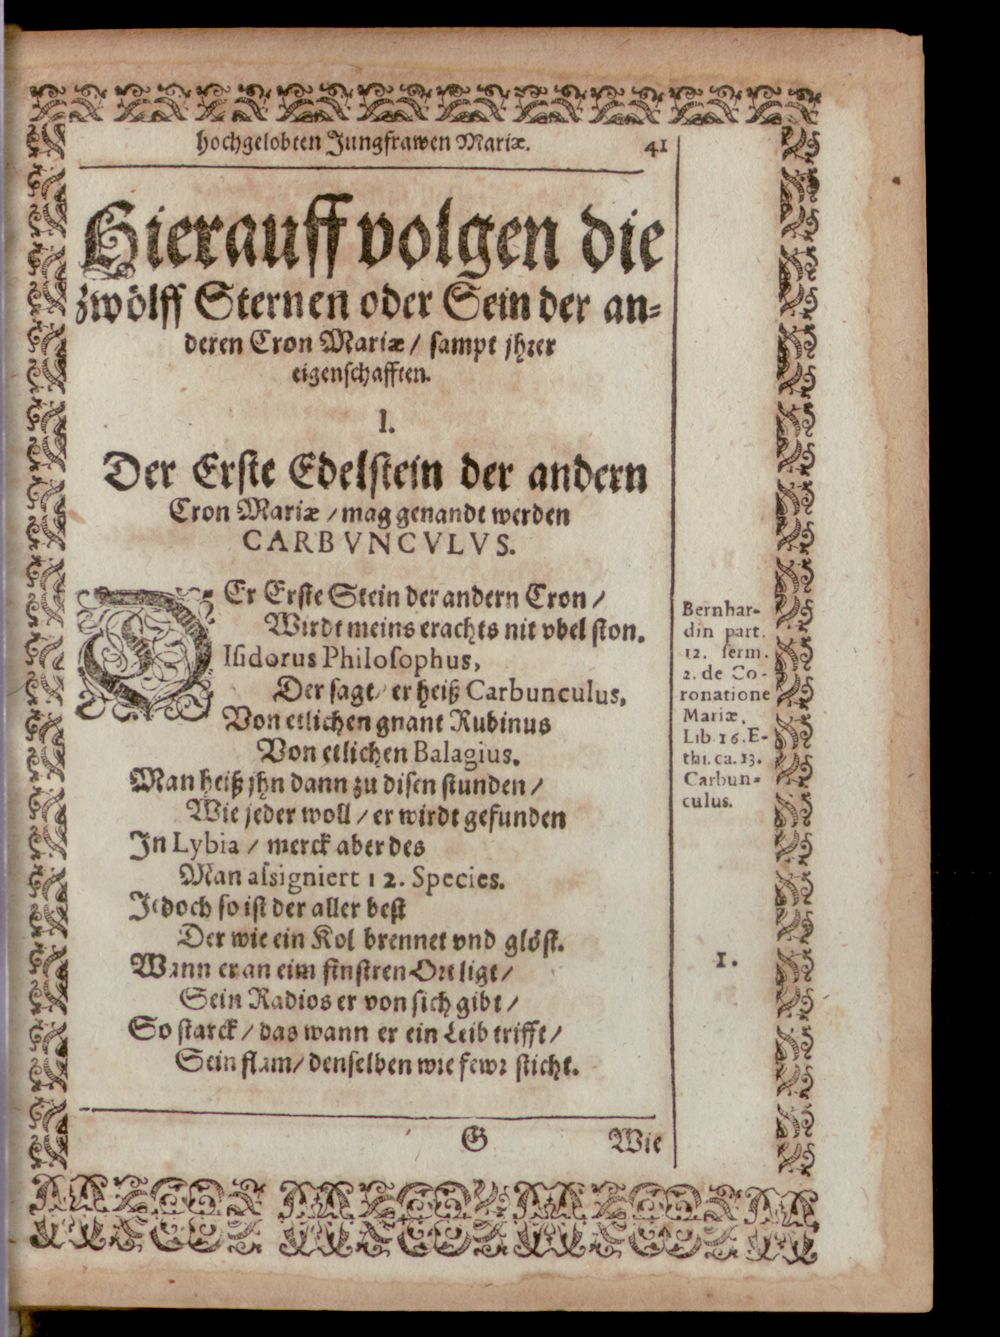 hochgelobten Jungfrawen Mariæ. 41
Hierauff volgen die
zwölff Sternen oder Stein der an-
deren Cron Mariæ / sampt jhrer
eigenschafften.
I.
Der Erste Edelstein der andern
Cron Mariæ / mag genandt werden
CARBVNCVLVS.
DEr Erste Stein der andern Cron /
Wirdt meins erachts nit vbel ston.
Isidorus Philosophus,
Der sagt / er heiß Carbunculus,
Von etlichen gnant Rubinus
Von etlichen Balagius.
Man heiß jhn dann zu disen stunden /
Wie jeder woll / er wirdt gefunden
In Lybia / merck aber des
Man assigniert 12. Species.
Jedoch so ist der aller best
Der wie ein Kol brennet vnd glöst.
Wann er an eim finstren Ort ligt /
Sein Radios er von sich gibt /
So starck / das wann er ein Leib trifft /
Sein flam / denselben wie fewr sticht.
Bernhar-
din part.
12. serm.
2. de Co-
ronatione
Mariæ.
Lib 16. E-
thi. ca. 13.
Carbun-
culus.
1.
G Wie